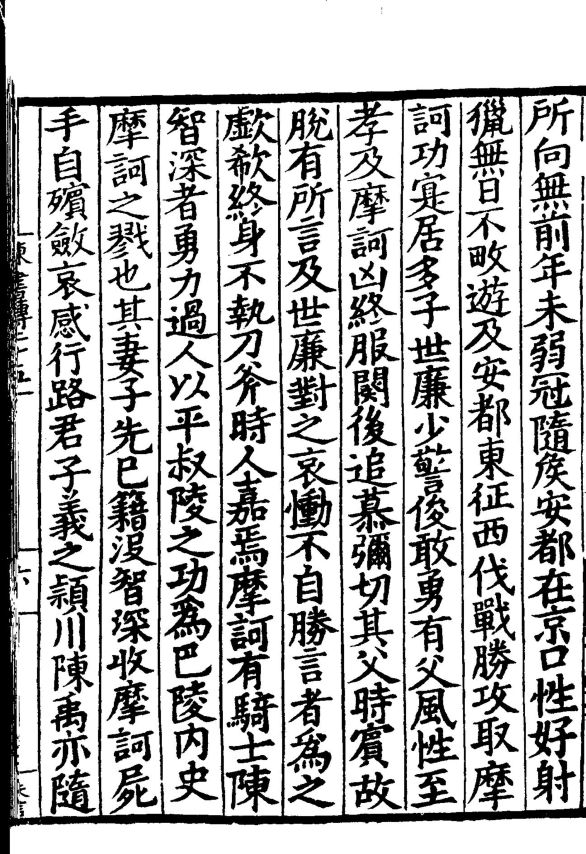 所向無前年未弱冠隨侯安都在京口性好射
獵無日不畋遊及安都東征西伐戰勝攻取摩
訶功寔居多子世廉少警俊敢勇有父風性至
孝及摩訶凶終服闋後追慕彌切其父時賓故
脫有所言及世廉對之哀慟不自勝言者爲之
歔欷終身不執刀斧時人嘉焉摩訶有騎士陳
智深者勇力過人以平叔陵之功爲巴陵內史
摩訶之戮也其妻子先已籍沒智深收摩訶屍
手自殯斂哀感行路君子義之潁川陳禹亦隨
陳書傳二十五
六